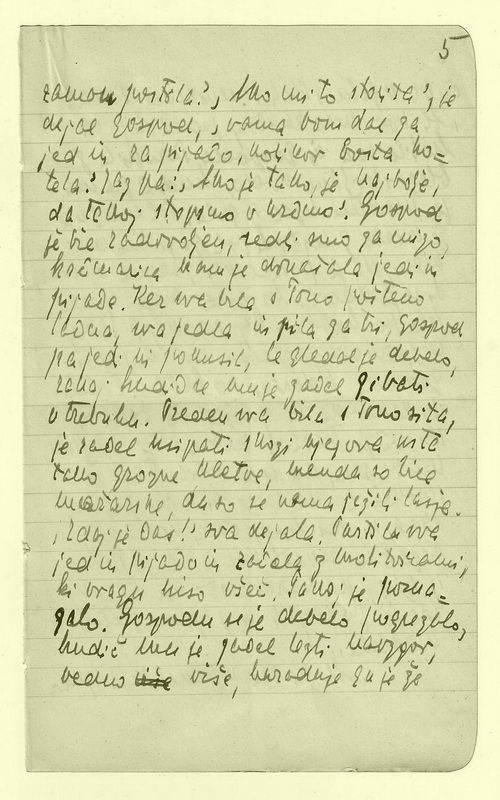 5
zamou postela?, Ako mi to storita', je
dejal gospod, , vama bom dal za
jed in za pijačo, kolikor bosta ho=
tela.' Jaz pa: , Ako je tako, je najbolje,
da takoj stopimo v krčmo'. Gospod
je bil zadovoljen, sedli smo za mizo,
krčmarica nam je donašala jedi in
pijače. Ker sva bila s Tono pošteno
lačna, sva jedla in pila za tri, gospod
pa jedi ni pokusil, le gledal je debelo,
zakaj hudič se mu je začel gibati
v trebuhu. Preden sva bila s Tono sita,
je začel usipati skozi njegova usta
tako grozne kletve, menda so bile
mažarske, da so se nama ježili lasje.
, Zdaj je čas!' sva dejala. Pustila sva
jed in pijačo in začela z molitvicami,
ki vragu niso všeč. Takoj je poma=
galo. Gospodu se je debelo pogrezalo,
hudič mu je začel lezti navzgor,
vedno više, kazalnje ga je že